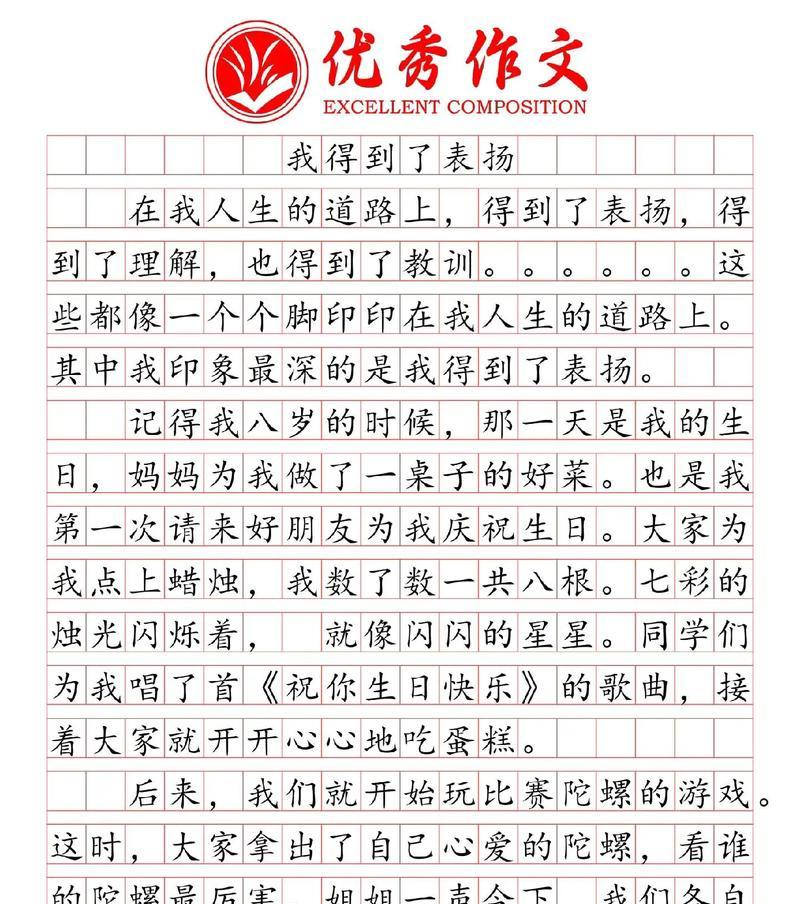 优秀作文
EXCELLENT COMPOSITION
我得到了表扬
在我人生的道路上，得到了表扬，得
到了理解，也得到了教训。。。。。。这
些都像一个个脚印印在我人生的道路上。
其中我印象最深的是我得到了表扬。
记得我八岁的时候，那一天是我的生
日，妈妈为我做了一桌子的好菜。也是我
第一次请来好朋友为我庆祝生日。大家为
我点上蜡烛，我数了数一共八根。七彩的
烛光闪烁着， 就像闪闪的星星。同学们
为我唱了首《祝你生日快乐》的歌曲，接
着大家就开开心心地吃蛋糕。
后来，我们就开始玩比赛陀螺的游戏。
这时，大家拿出了自己心爱的陀螺，看谁
的陀螺最厉害。姐姐一声令下，我们各自